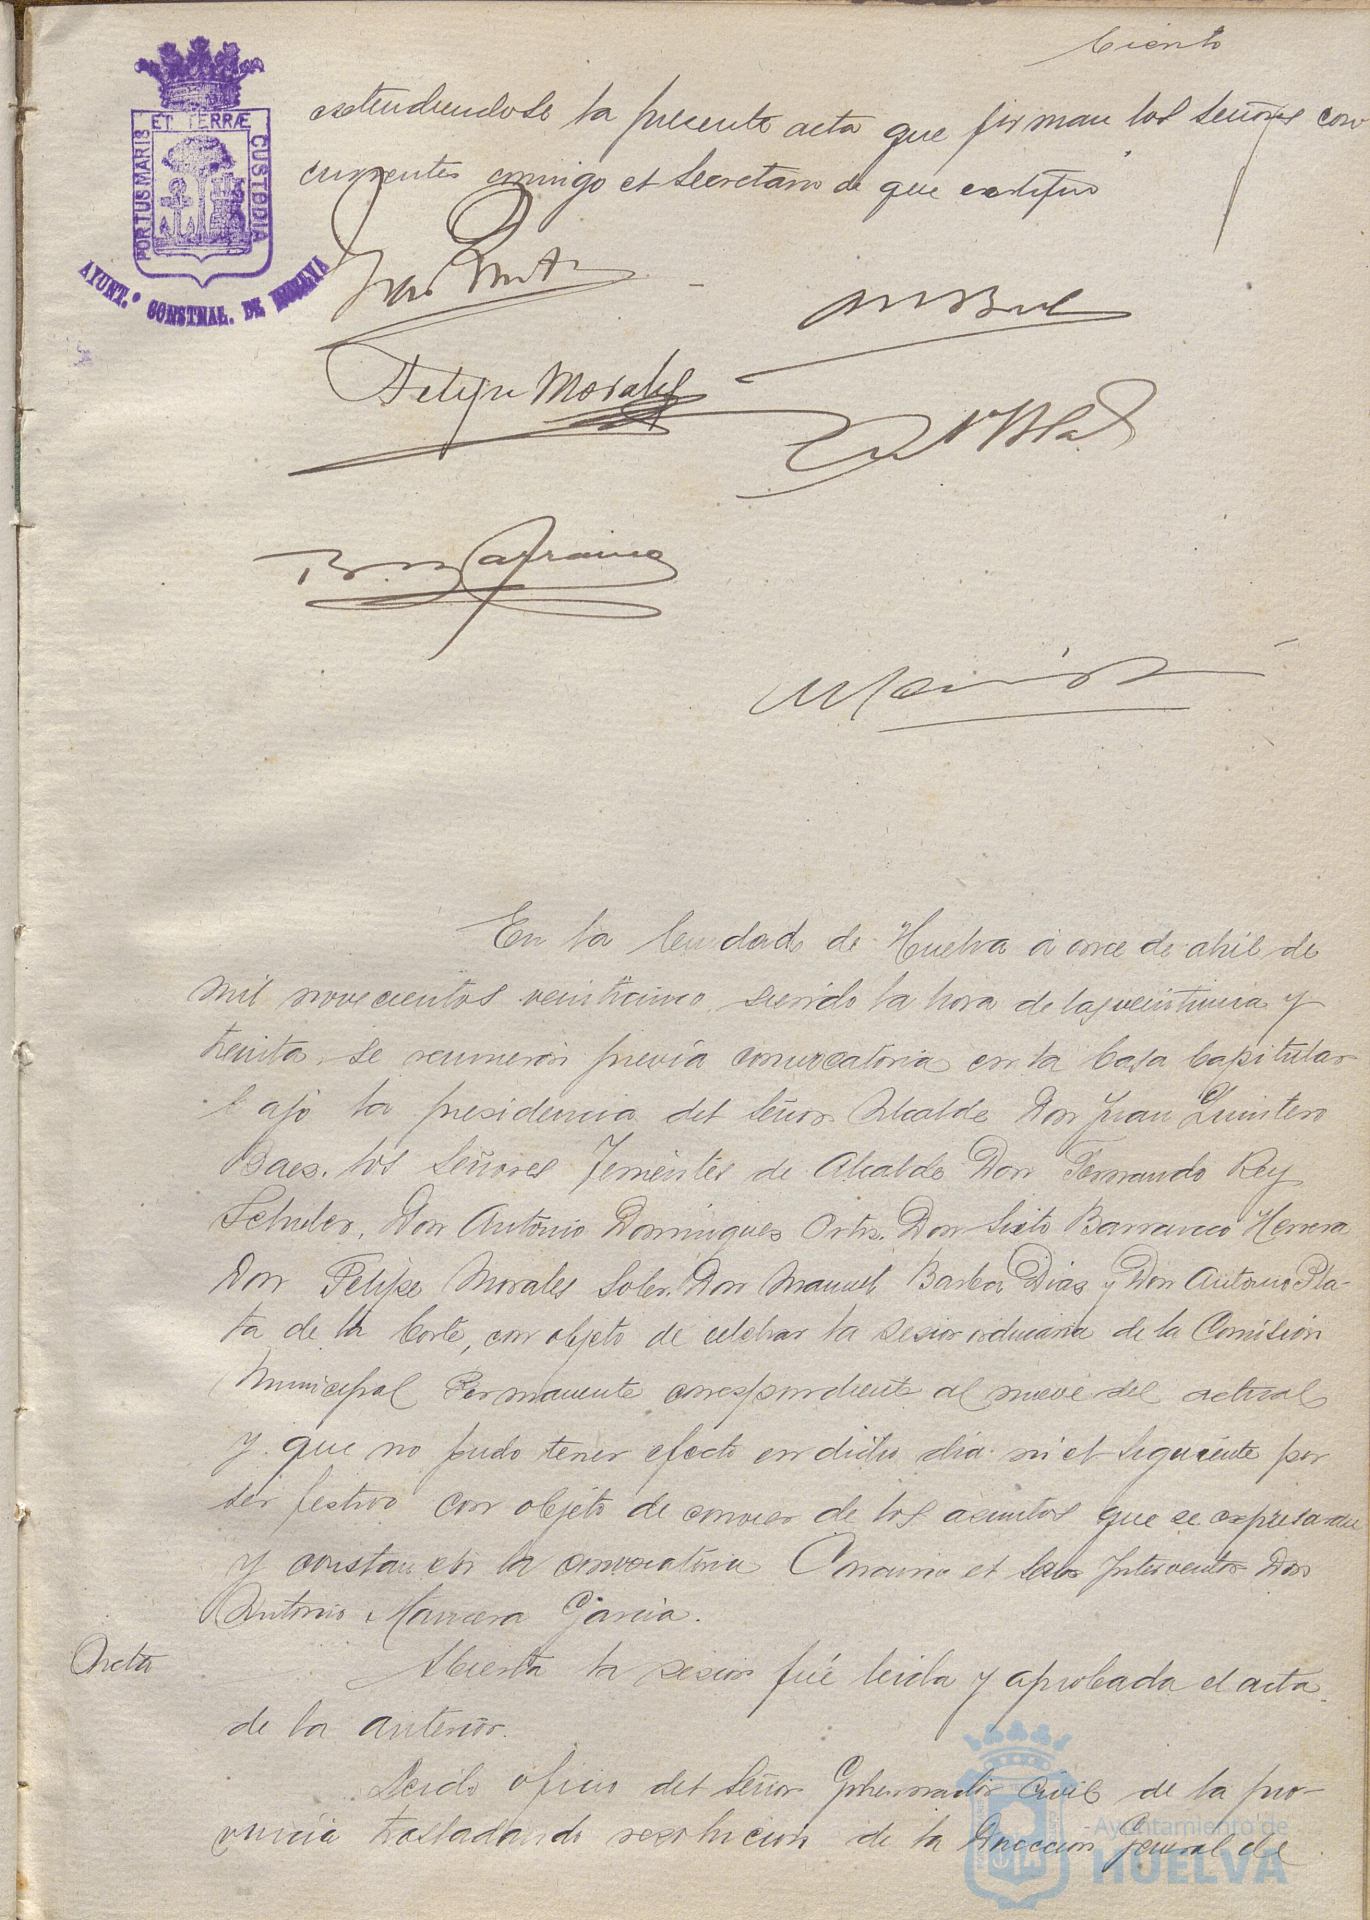 Ciento
extendiendose la presente acta que firman los señores con
currentes conmigo el Secretario de que certifico
PORTUS MARIS ET TERRÆ CUSTODIA
AYUNT.º CONSTNAL. DE HUELVA
Felipe Morales
En la Ciudad de Huelva á once de abril de
mil novecientos veinticinco, siendo la hora de las veintiuna y
treinta, se reunieron previa convocatoria en la Casa Capitular
bajo la presidencia del Señor Alcalde Don Juan Quintero
Baez, los Señores Tenientes de Alcalde Don Fernando Rey
Don Antonio Domingues Ortiz, Don Sixto Barranco Herrera
Don Felipe Morales Soler, Don Manuel Barba Diaz y Don Antonio Pla-
ta de la Corte, con objeto de celebrar la sesion ordinaria de la Comision
Municipal Permanente correspondiente al nueve del actual
y que no pudo tener efecto en dicho dia ni el siguiente por
ser festivo con objeto de conocer de los asuntos que se expresaran
y constan en la convocatoria Concurrio el Señor Interventor Don
Antonio Garcia.
Acta
Abierta la sesion fué leida y aprobada el acta
de la anterior.
Leido oficio del Señor Gobernador Civil de la pro-
vincia trasladando resolucion de la Direccion general de
Ayuntamiento de
HUELVA